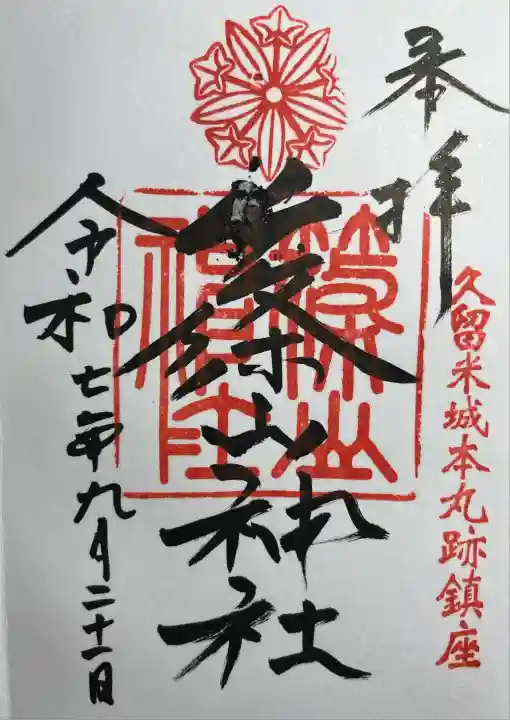 奉拝
久留米城本丸跡鎮座
篠山神社
篠山神社
令和七年九月二十一日